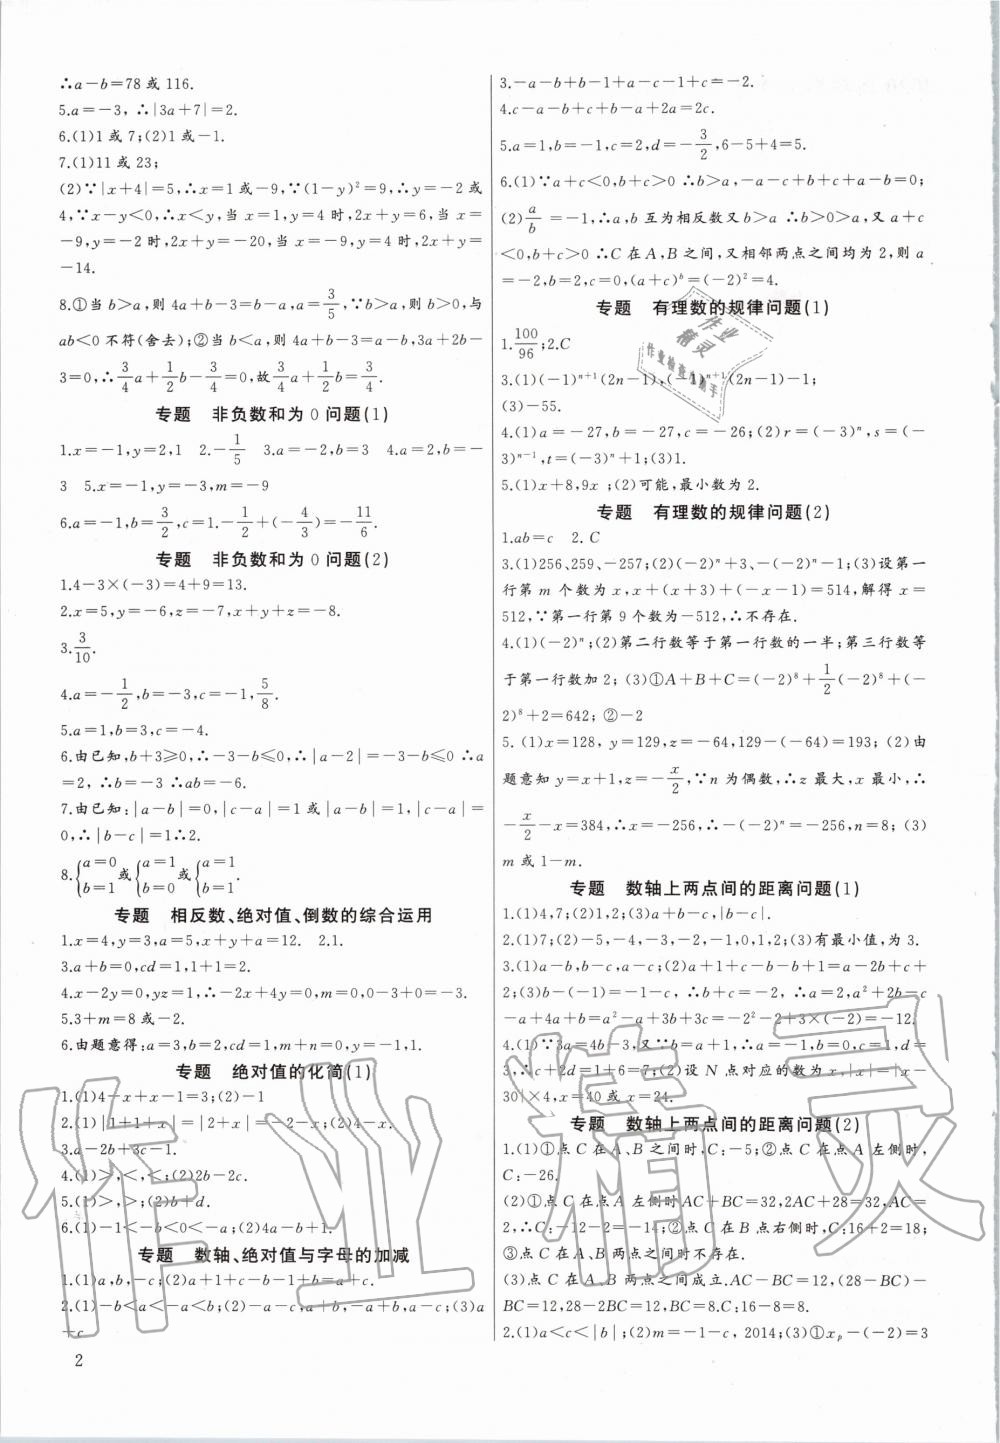 ∴a-b=78或116.
5.a=-3,∴|3a+7|=2.
6.(1)1或7;(2)1或-1.
7.(1)11或23;
(2)∵|x+4|=5,∴x=1或-9,∵(1-y)²=9,∴y=-2或
4,∵x-y<0,∴x<y,当x=1,y=4时,2x+y=6,当x=
-9,y=-2时,2x+y=-20,当x=-9,y=4时,2x+y=
-14.
8.①当b>a,则4a+b-3=b-a,a=3/5,∵b>a,则b>0,与
ab<0不符(舍去);②当b<a,则4a+b-3=a-b,3a+2b-
3=0,∴3/4a+1/2b-3/4=0,故3/4a+1/2b=3/4.
专题 非负数和为0问题(1)
1.x=-1,y=2,1 2.-1/5 3.a=-2,b=3 4.a=2,b=-
3 5.x=-1,y=-3,m=-9
6.a=-1,b=3/2,c=1.-1/2+(-4/3)=-11/6.
专题 非负数和为0问题(2)
1.4-3×(-3)=4+9=13.
2.x=5,y=-6,z=-7,x+y+z=-8.
3.3/10.
4.a=-1/2,b=-3,c=-1,5/8.
5.a=1,b=3,c=-4.
6.由已知,b+3≥0,∴-3-b≤0,∴|a-2|=-3-b≤0∴a
=2,∴b=-3∴ab=-6.
7.由已知:|a-b|=0,|c-a|=1或|a-b|=1,|c-a|=
0,∴|b-c|=1∴2.
8.{a=0 b=1或{a=1 b=0或{a=1 b=1
专题 相反数、绝对值、倒数的综合运用
1.x=4,y=3,a=5,x+y+a=12. 2.1.
3.a+b=0,cd=1,1+1=2.
4.x-2y=0,yz=1,∴-2x+4y=0,m=0,0-3+0=-3.
5.3+m=8或-2.
6.由题意得:a=3,b=2,cd=1,m+n=0,y=-1,1.
专题 绝对值的化简(1)
1.(1)4-x+x-1=3;(2)-1
2.(1)|1+1+x|=|2+x|=-2-x;(2)4-x.
3.a-2b+3c-1.
4.(1)>,<,<;(2)2b-2c.
5.(1)>,>;(2)b+d.
6.(1)-1<-b<0<-a;(2)4a-b+1.
专题 数轴、绝对值与字母的加减
1.(1)a,b,-c;(2)a+1+c-b-1+b=a+c.
2.(1)-b<a<-a<b;(2)-a-c,a+b,-a+b,a-c;(3)a
+c
2
3.-a-b+b-1+a-c-1+c=-2.
4.c-a-b+c+b-a+2a=2c.
5.a=1,b=-1,c=2,d=-3/2,6-5+4=5.
6.(1)∵a+c<0,b+c>0∴b>a,-a-c+b+c+a-b=0;
(2)a/b=-1,∴a,b互为相反数又b>a∴b>0>a,又a+c
<0,b+c>0∴C在A,B之间,又相邻两点之间均为2,则a
=-2,b=2,c=0,(a+c)ᵇ=(-2)²=4.
专题 有理数的规律问题(1)
1.100/96;2.C
3.(1)(-1)ⁿ⁺¹(2n-1),(-1)ⁿ⁺¹(2n-1)-1;
(3)-55.
4.(1)a=-27,b=-27,c=-26;(2)r=(-3)ⁿ,s=(-
3)ⁿ⁻¹,t=(-3)ⁿ+1;(3)1.
5.(1)x+8,9x;(2)可能,最小数为2.
专题 有理数的规律问题(2)
1.ab=c 2.C
3.(1)256、259、-257;(2)(-2)ⁿ+3、-(-2)ⁿ-1;(3)设第一
行第m个数为x,x+(x+3)+(-x-1)=514,解得x=
512,∵第一行第9个数为-512,∴不存在.
4.(1)(-2)ⁿ;(2)第二行数等于第一行数的一半;第三行数等
于第一行数加2;(3)①A+B+C=(-2)⁸+1/2(-2)⁸+(-
2)⁸+2=642;②-2
5.(1)x=128,y=129,z=-64,129-(-64)=193;(2)由
题意知y=x+1,z=-x/2,∵n为偶数,∴z最大,x最小,∴
-x/2-x=384,∴x=-256,∴-(-2)ⁿ=-256,n=8;(3)
m或1-m.
专题 数轴上两点间的距离问题(1)
1.(1)4,7;(2)1,2;(3)a+b-c,|b-c|.
2.(1)7;(2)-5,-4,-3,-2,-1,0,1,2;(3)有最小值,为3.
3.(1)a-b,b-c,a-c;(2)a+1+c-b-b+1=a-2b+c+
2;(3)b-(-1)=-1-c,∴b+c=-2,∴a=2,a²+2b-c
-a+4a+b=a²-a+3a+3b+3c=2²-2+3×(-2)=-12.
4.(1)∵3a=4b-3,又∵b=a+1,∴a=-1,b=0,c=1,d=
3,∴c+2d=1+6=7;(2)设N点对应的数为x,|x|=|x-
30|×4,x=40或x=24.
专题 数轴上两点间的距离问题(2)
1.(1)①点C在A、B之间时,C:-5;②点C在点A左侧时,
C:-26.
(2)①点C在点A左侧时AC+BC=32,2AC+28=32,AC=
2,∴C:-12-2=-14;②点C在B点右侧时,C:16+2=18;
③点C在A、B两点之间时不存在.
(3)点C在A、B两点之间成立.AC-BC=12,(28-BC)-
BC=12,28-2BC=12,BC=8.C:16-8=8.
2.(1)a<c<|b|;(2)m=-1-c,2014;(3)①xₚ-(-2)=3
作业精灵
作业精灵